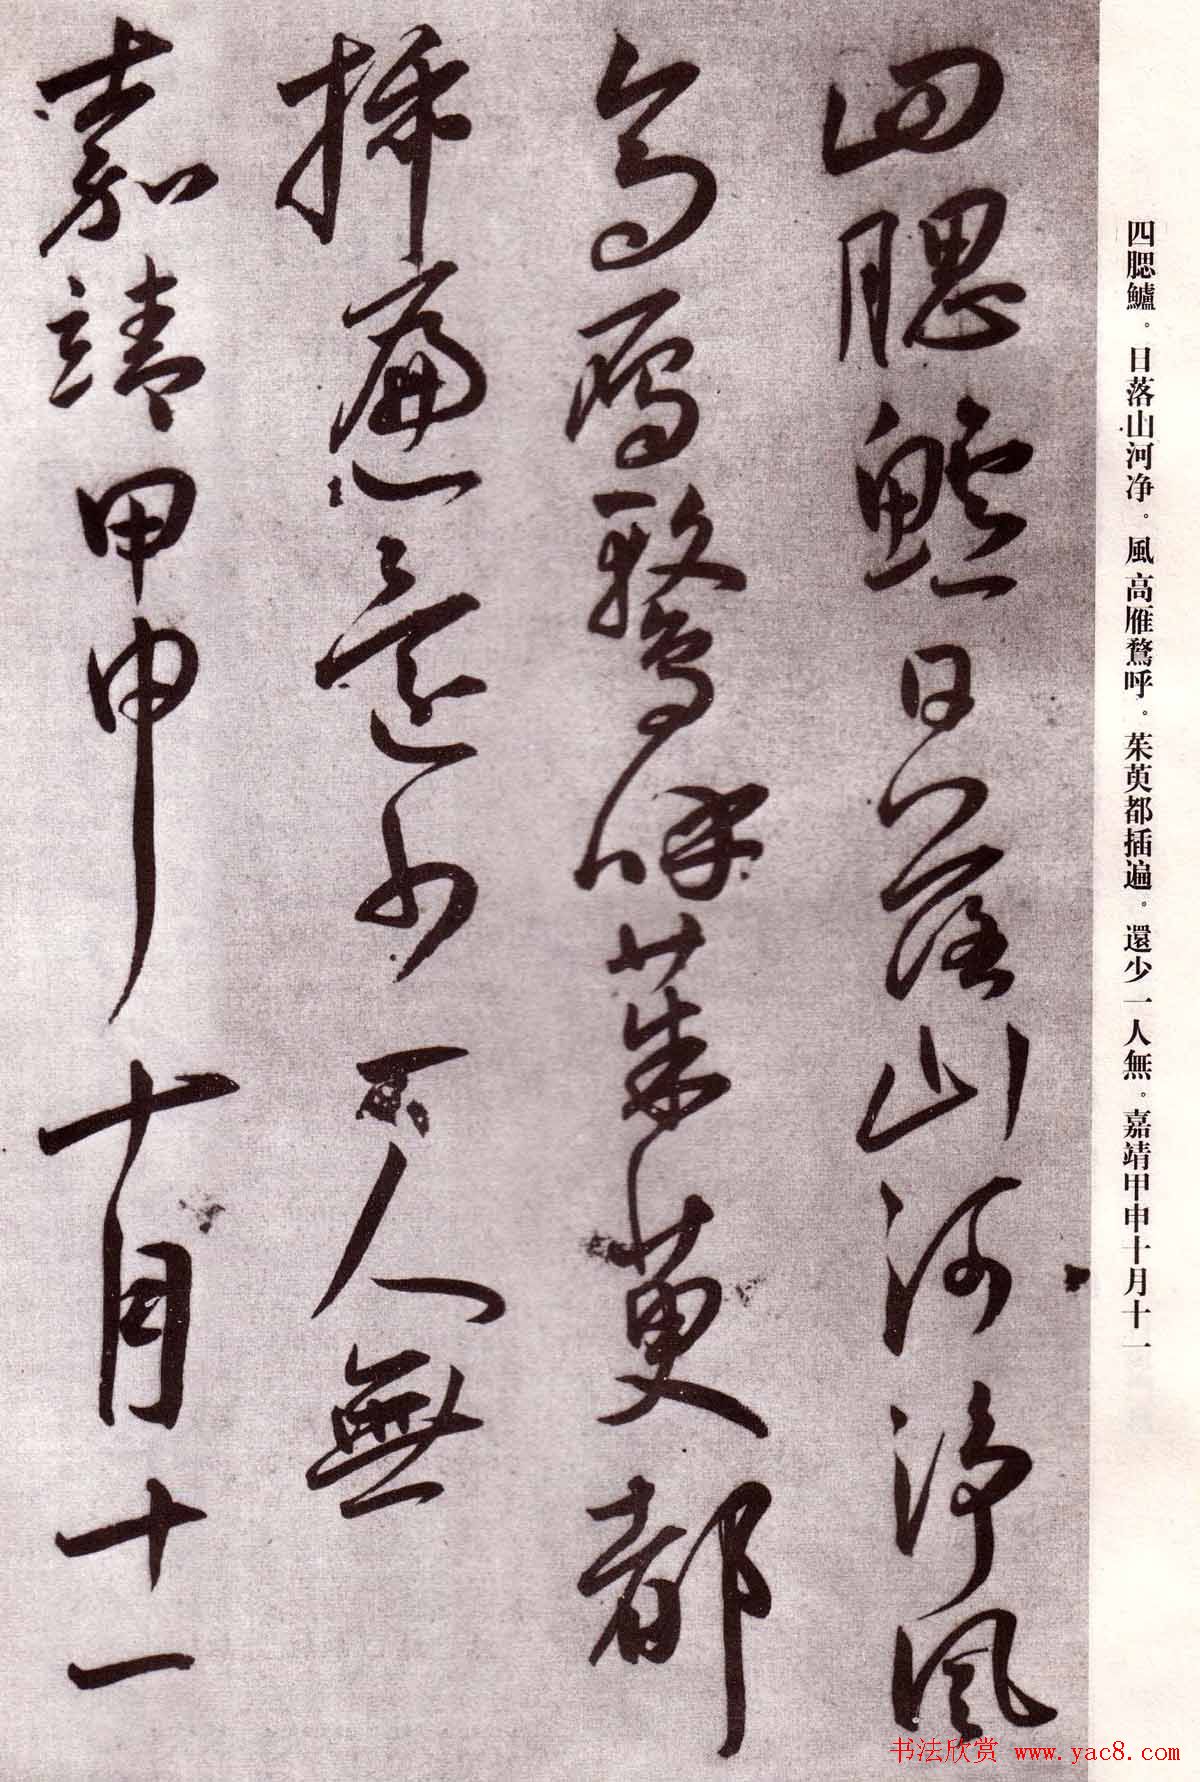 四腮鱸。日落山河净。風高雁鶩呼。茱萸都插遍。還少一人無。嘉靖甲申十月十一
四腮鱸日落山河净風
高雁鶩呼茱萸都
插遍還少一人無
嘉靖甲申十月十一
书法欣赏 www.yac8.com